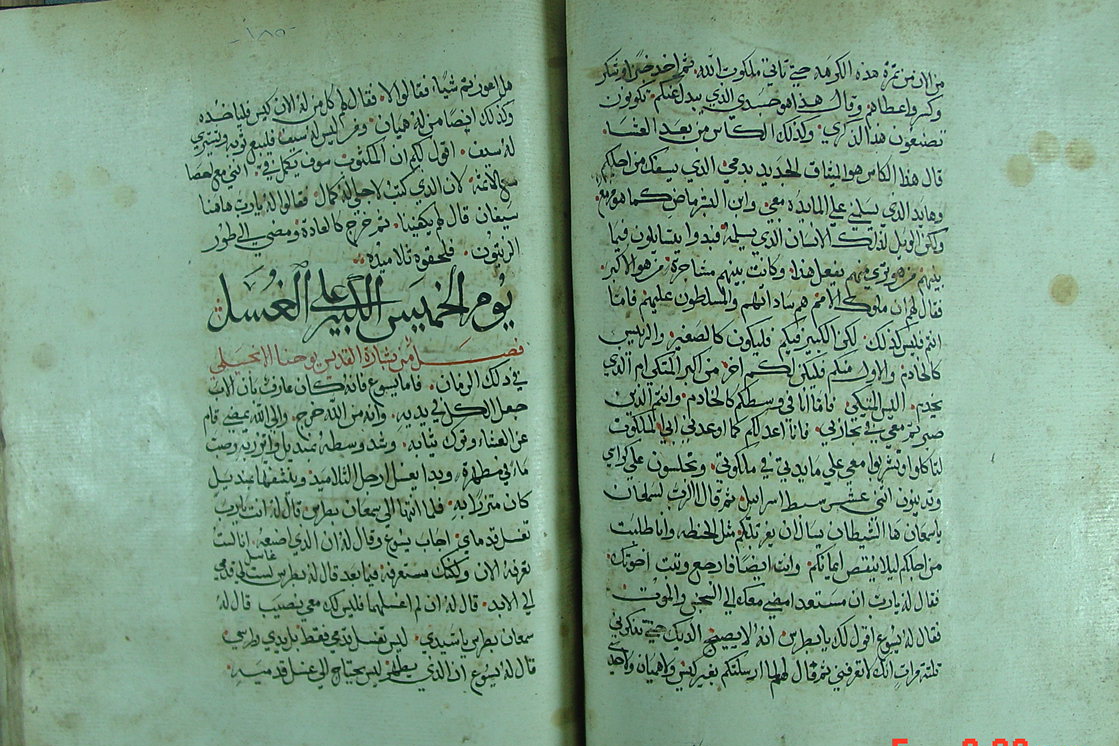 من الان من ثمرة هذه الكرمه حتي تاتي ملكوت الله ثم اخد خبزا وشكر
وكسر واعطاهم وقال هذا هو جسدي الذي يبدل عنكم تكونون
تصنعون هذا لذكري ولذلك الكاس من بعد العشا
قال هذا الكاس هو الميثاق الجديد بدمي الذي يسفك من اجلكم
وها يد الذي يسلمني علي المايده معي وابن البشر ماض كما هو مزمع
ولكن الويل لذلك الانسان الذي يسلمه فبدوا يتسايلون فيما
بينهم من هو تري منهم يفعل هذا وكانت بينهم مشاجره من هو الاكبر
فقال لهم ان ملوك الامم هم ساداتهم والمسلطون عليهم فاما
انتم فليس كذلك لكن الكبير فيكم فليكون كالصغير والرييس
كالخادم والاول منكم فليكن لكم اخر من اكبر المتكي ام الذي
يخدم اليس المتكي فاما انا في وسطكم كالخادم وانتم الدين
صبرتم معي في تجاربي فانا اعد لكم كما اوعدني ابي الملكوت
لتاكلوا وتشربوا معي علي مايدتي في ملكوتي وتجلسون علي كراسي
وتدينون اثني عشر سبط اسراييل ثم قال الرب لسمعان
ياسمعان ها الشيطان يسال ان يغربلكم مثل الحنطه وانا طلبت
من اجلكم ليلا ينقص ايمانكم وانت ايضا فارجع وثبت اخوتك
فقال له يارب ان مستعد امضي معك الي السجن والموت
فقال له يسوع اقول لك يابطرس انه لا يصيح الديك حتي تنكرني
ثلثه مرات انك لا تعرفني ثم قال لهم لما ارسلتكم بغير كيس ولا هميان ولا حدي
- ١٨٥ -
هل اعوزتم شيا فقالوا لا فقال لهم كل من له الان كيس فلياخده
وكذلك ايضا من له هميان ومن ليس له سيف فليبع ثوبه ويشتري
له سيف اقول لكم ان المكتوب سوف يكمل في انني مع احصا
مع الاثمه لان الذي كتب لاجلي له كمال فقالوا له يارب هاهنا
سيفان قال لهم يكفينا ثم خرج كالعاده ومضي الي طور
الزيتون فلحقوه تلاميذه
يوم الخميس الكبير علي الغسل
فصل من بشارة القديس يوحنا الانجيلي
في ذلك الزمان فاما يسوع فانه كان عارف بان الاب
جعل الكل في يديه وانه من الله خرج والي الله يمضي قام
عن العشا وترك ثيابه وشد وسطه بمنديل واتزر به وصب
ما في مطهره وبدا يغسل ارجل التلاميذ وينشفها بمنديل
كان متزرا به فلما انتها الي سمعان بطرس قال له انت يارب
تغسل قدماي اجاب يسوع وقال له ان الذي اصنعه انا لست
تعرفه الان ولكنك ستعرفه فيما بعد قال له بطرس لست غاسل قدمي
الي الابد قال له ان لم اغسلهما فليس لك معي نصيب قال له
سمعان بطرس ياسيدي ليس تغسل قدمي فقط بل يدي وراسي
قال له يسوع ان الذي يطهر ليس يحتاج الي غسل قدميه